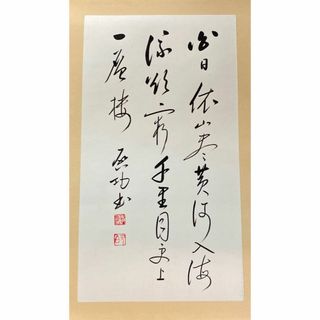 白日依山尽黄河入海
流欲窮千里目更上
一層楼 启功书